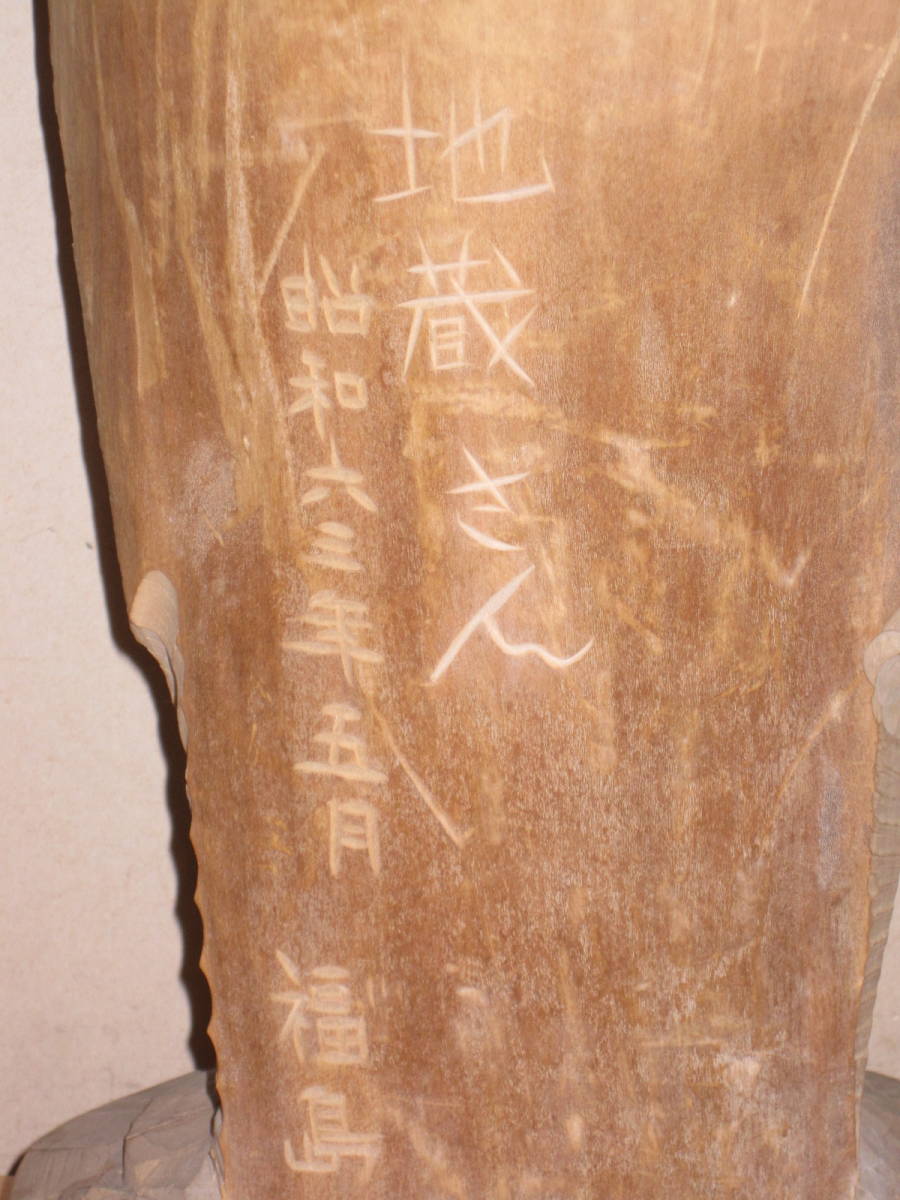 地蔵さん
昭和六三年五月 福島